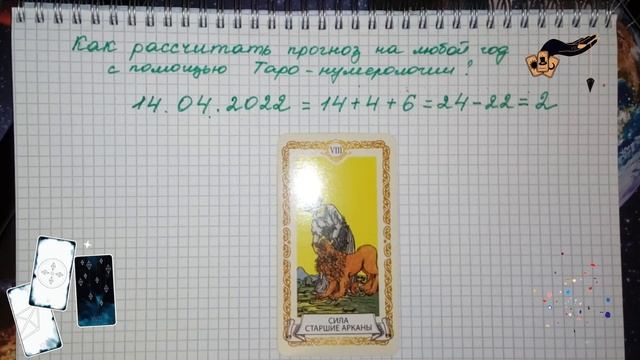 Как рассчитать прогноз на любой год
с помощью Таро-нумерологии?
14.04.2022 = 14+4+6=24-22=2
VIII
СИЛА
СТАРШИЕ АРКАНЫ